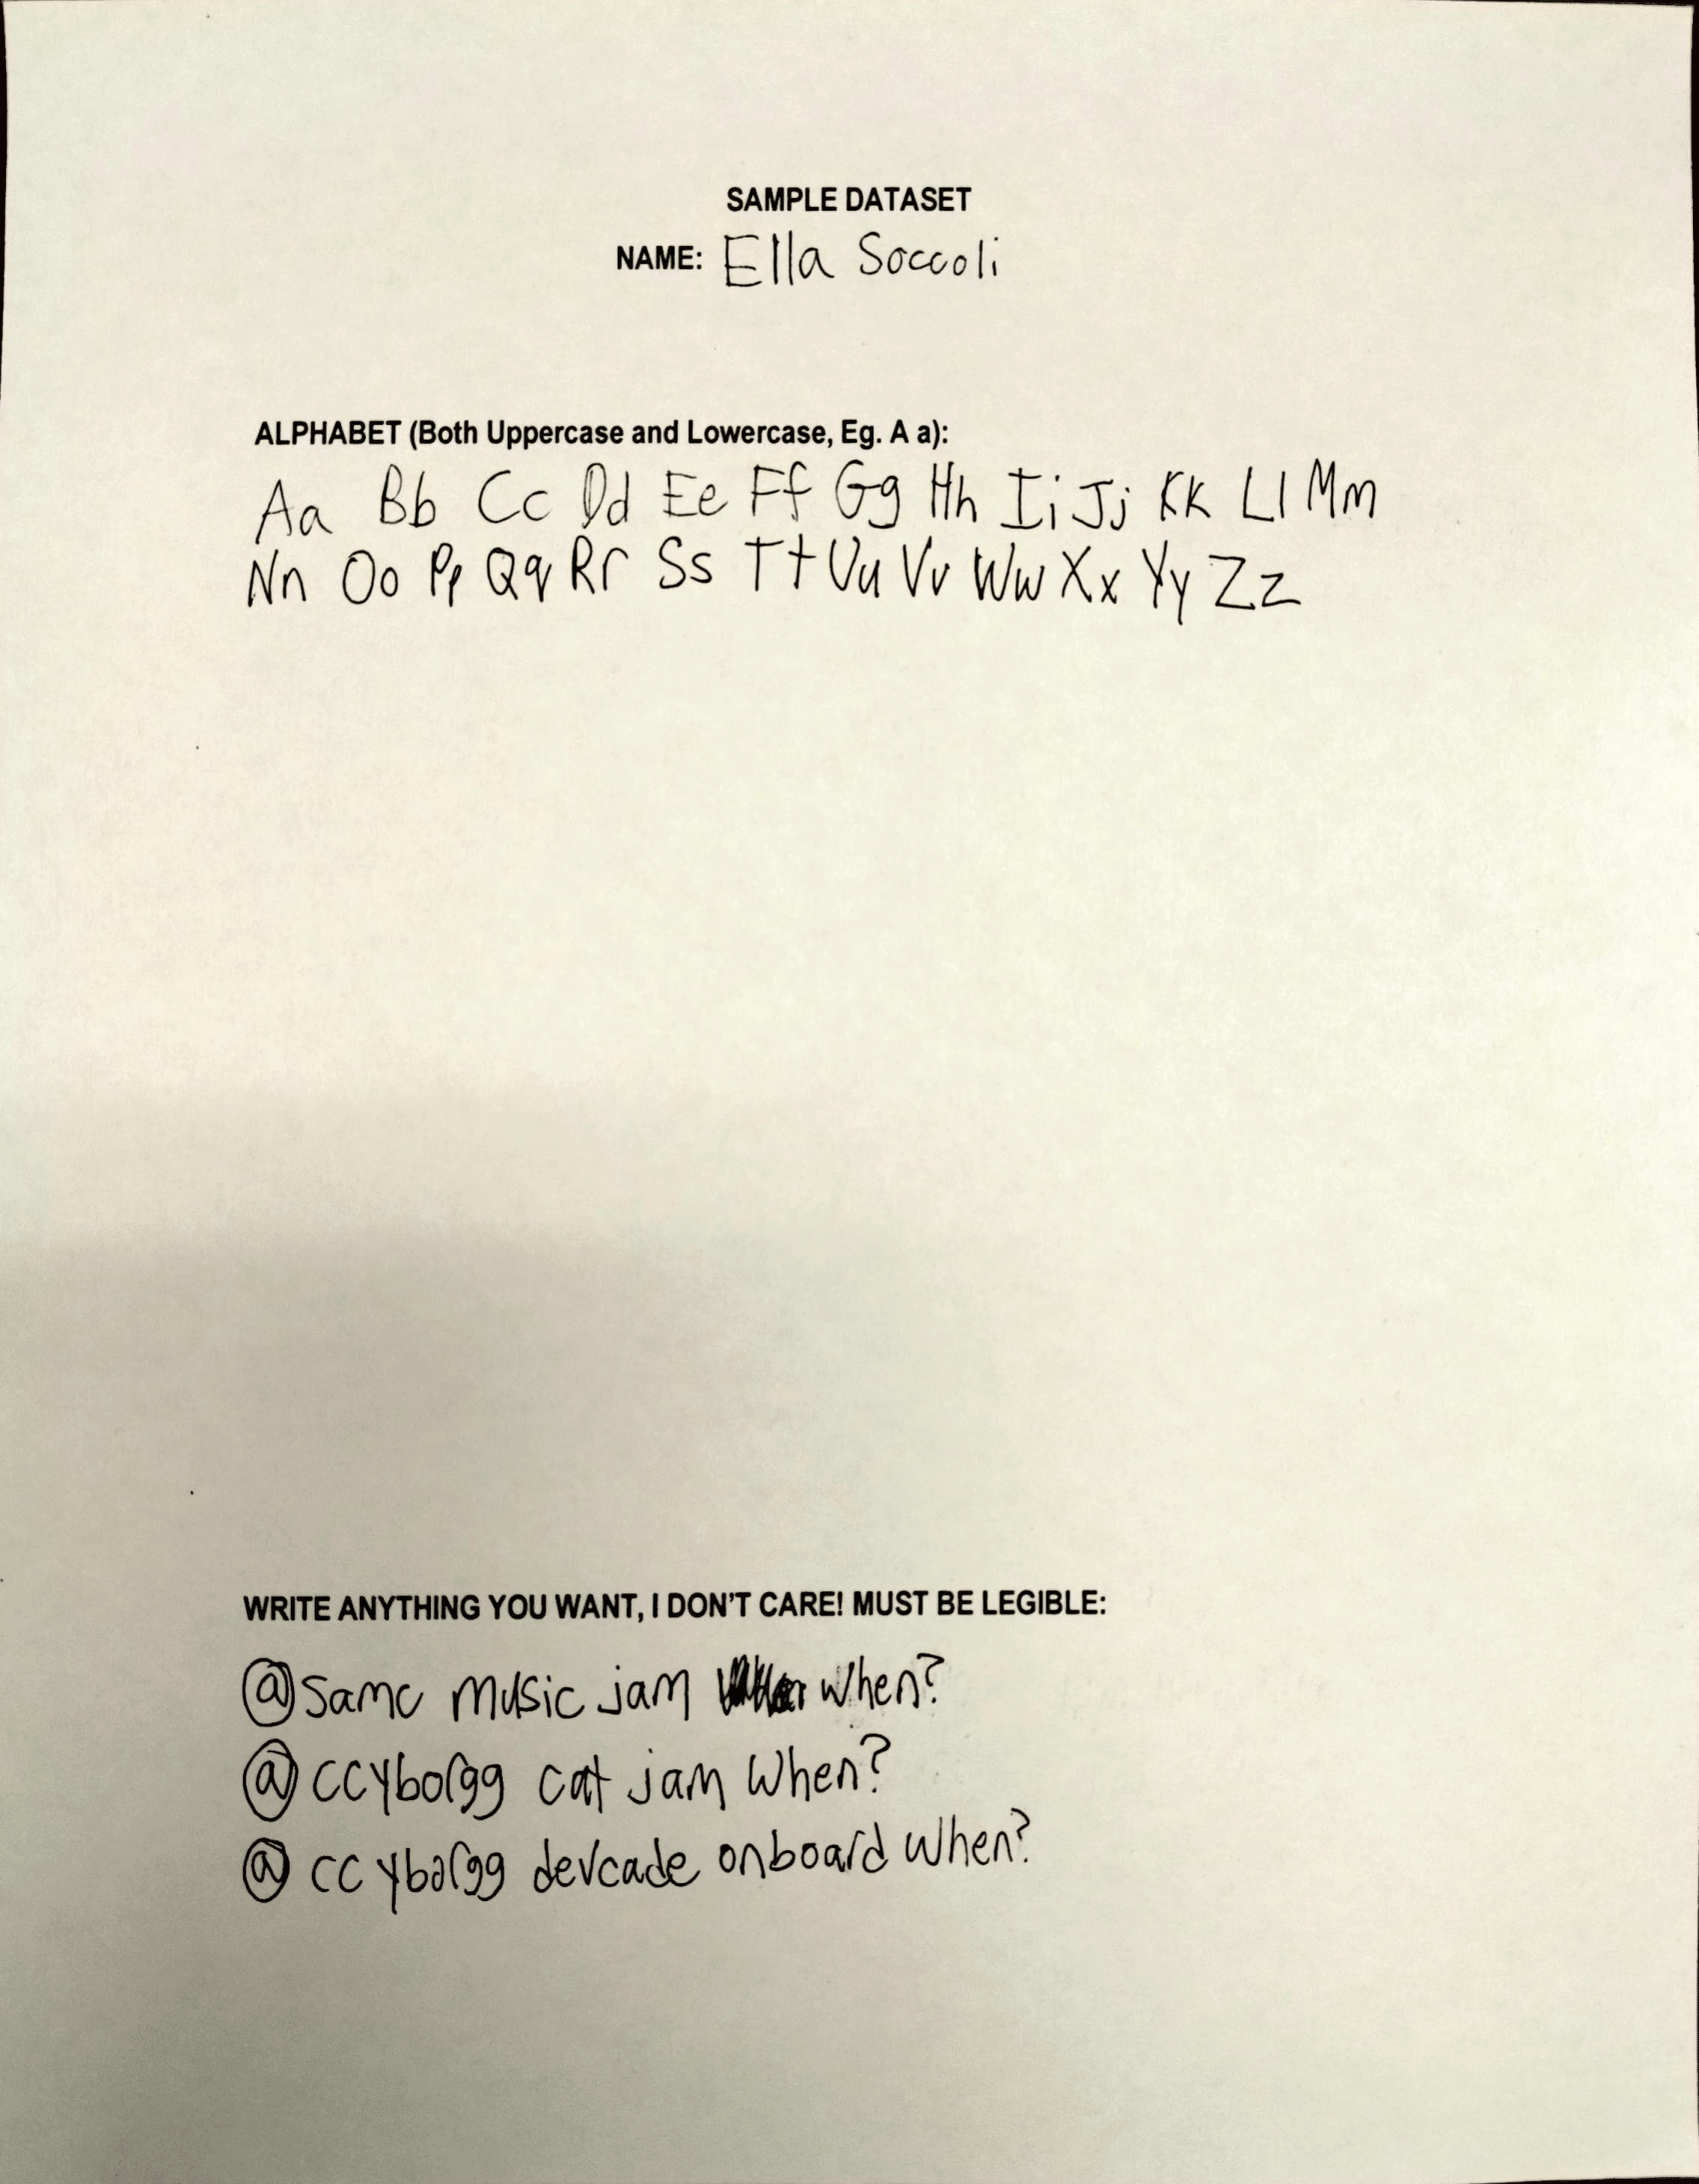 SAMPLE DATASET
NAME: Ella Soccoli
ALPHABET (Both Uppercase and Lowercase, Eg. A a):
Aa Bb Cc Dd Ee Ff Gg Hh Ii Jj Kk Ll Mm
Nn Oo Pp Qq Rr Ss Tt Uu Vv Ww Xx Yy Zz
WRITE ANYTHING YOU WANT, I DON'T CARE! MUST BE LEGIBLE:
@samc music jam when?
@ccyborgg cat jam when?
@ccyborgg devcade onboard when?